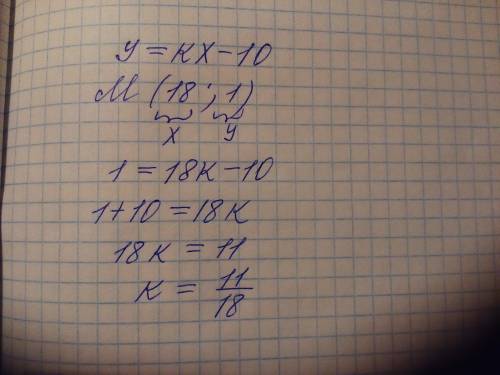 y = kx - 10
M (18 ; 1)
x y
1 = 18k - 10
1 + 10 = 18k
18k = 11
k = 11/18